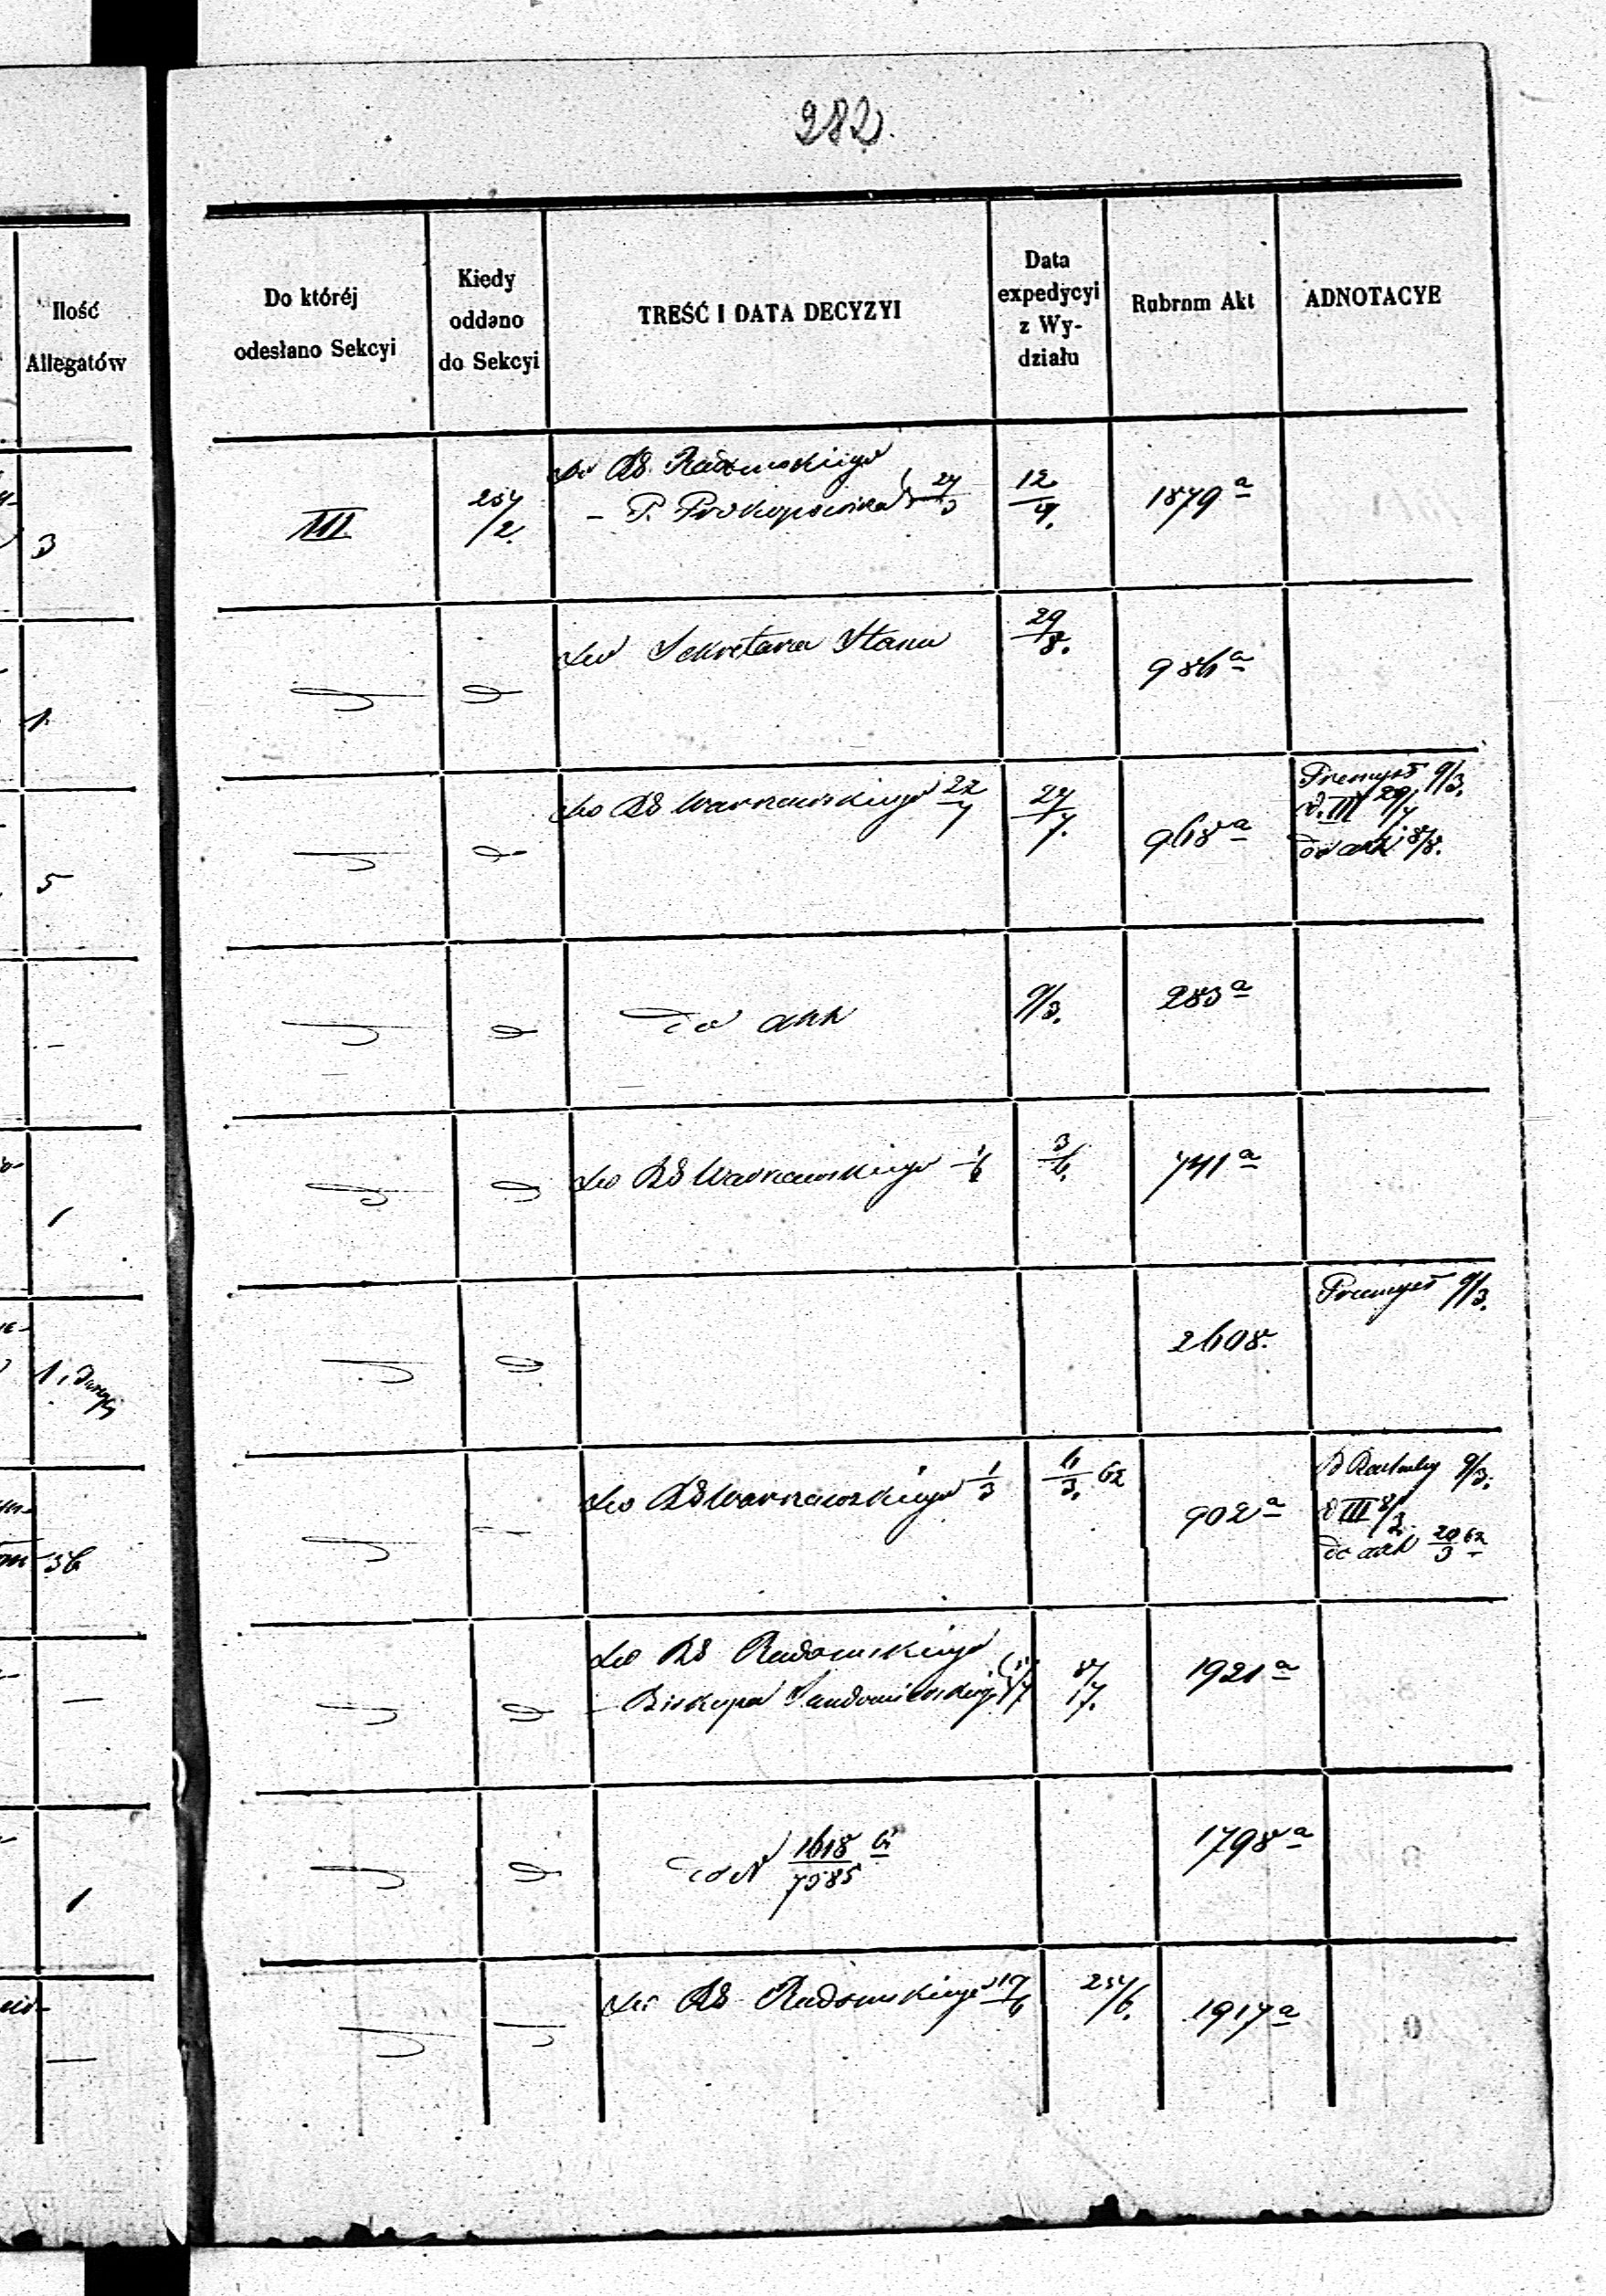 282.
Ilość
Allegatów
Do któréj
odesłano Sekcyi
Kiedy
oddano
do Sekcyi
TREŚĆ I DATA DECYZYI
Data
expedycyi
z Wy-
działu
Rubrum Akt
ADNOTACYE
3
III.
Do RG. Radomskiego
– P. Prokopowicza
12/4.
1879 a
1
Do Sekretarza Stanu
29/8.
986 a
5
Do RG Warszawskiego 22/7
27/7.
968 a
Przemysł 9/3.
do akt 8/8.
do akt
9/3.
283 a
1
Do RG Warszawskiego 1/6
3/6.
741 a
1
2608.
Przemysł 9/3.
36
Do RG Warszawskiego 1/3
6/3. 62
902 a
9/3.
do akt 20/3 62
Do RG Radomskiego
– Biskupa Sandomierskiego
8/7.
1921 a
1
do N 1618/7585
1798 a
Do RG Radomskiego 17/6
25/6.
1917 a